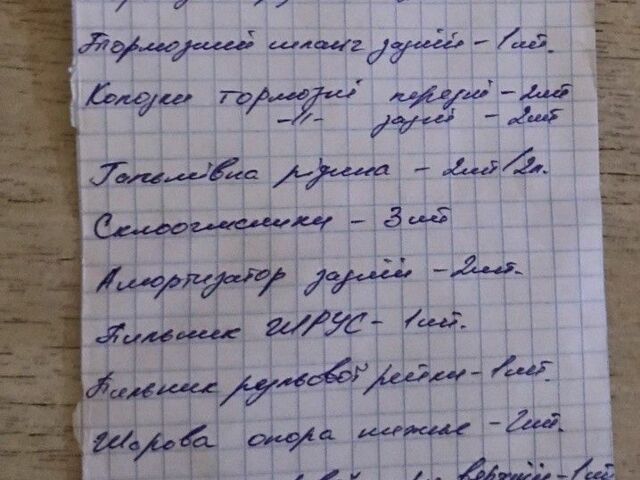 Тормозний шланг задній - 1 шт.
Колодки тормозні передні - 2 шт
-//- задні - 2 шт
Гальмівна рідина - 2 шт/2л.
Склоочисники - 3 шт
Амортизатор задній - 2 шт.
Пильник ШРУС - 1 шт.
Пильник рульової рейки - 1 шт.
Шарова опора нижня - 2 шт.
верхній - 1 шт